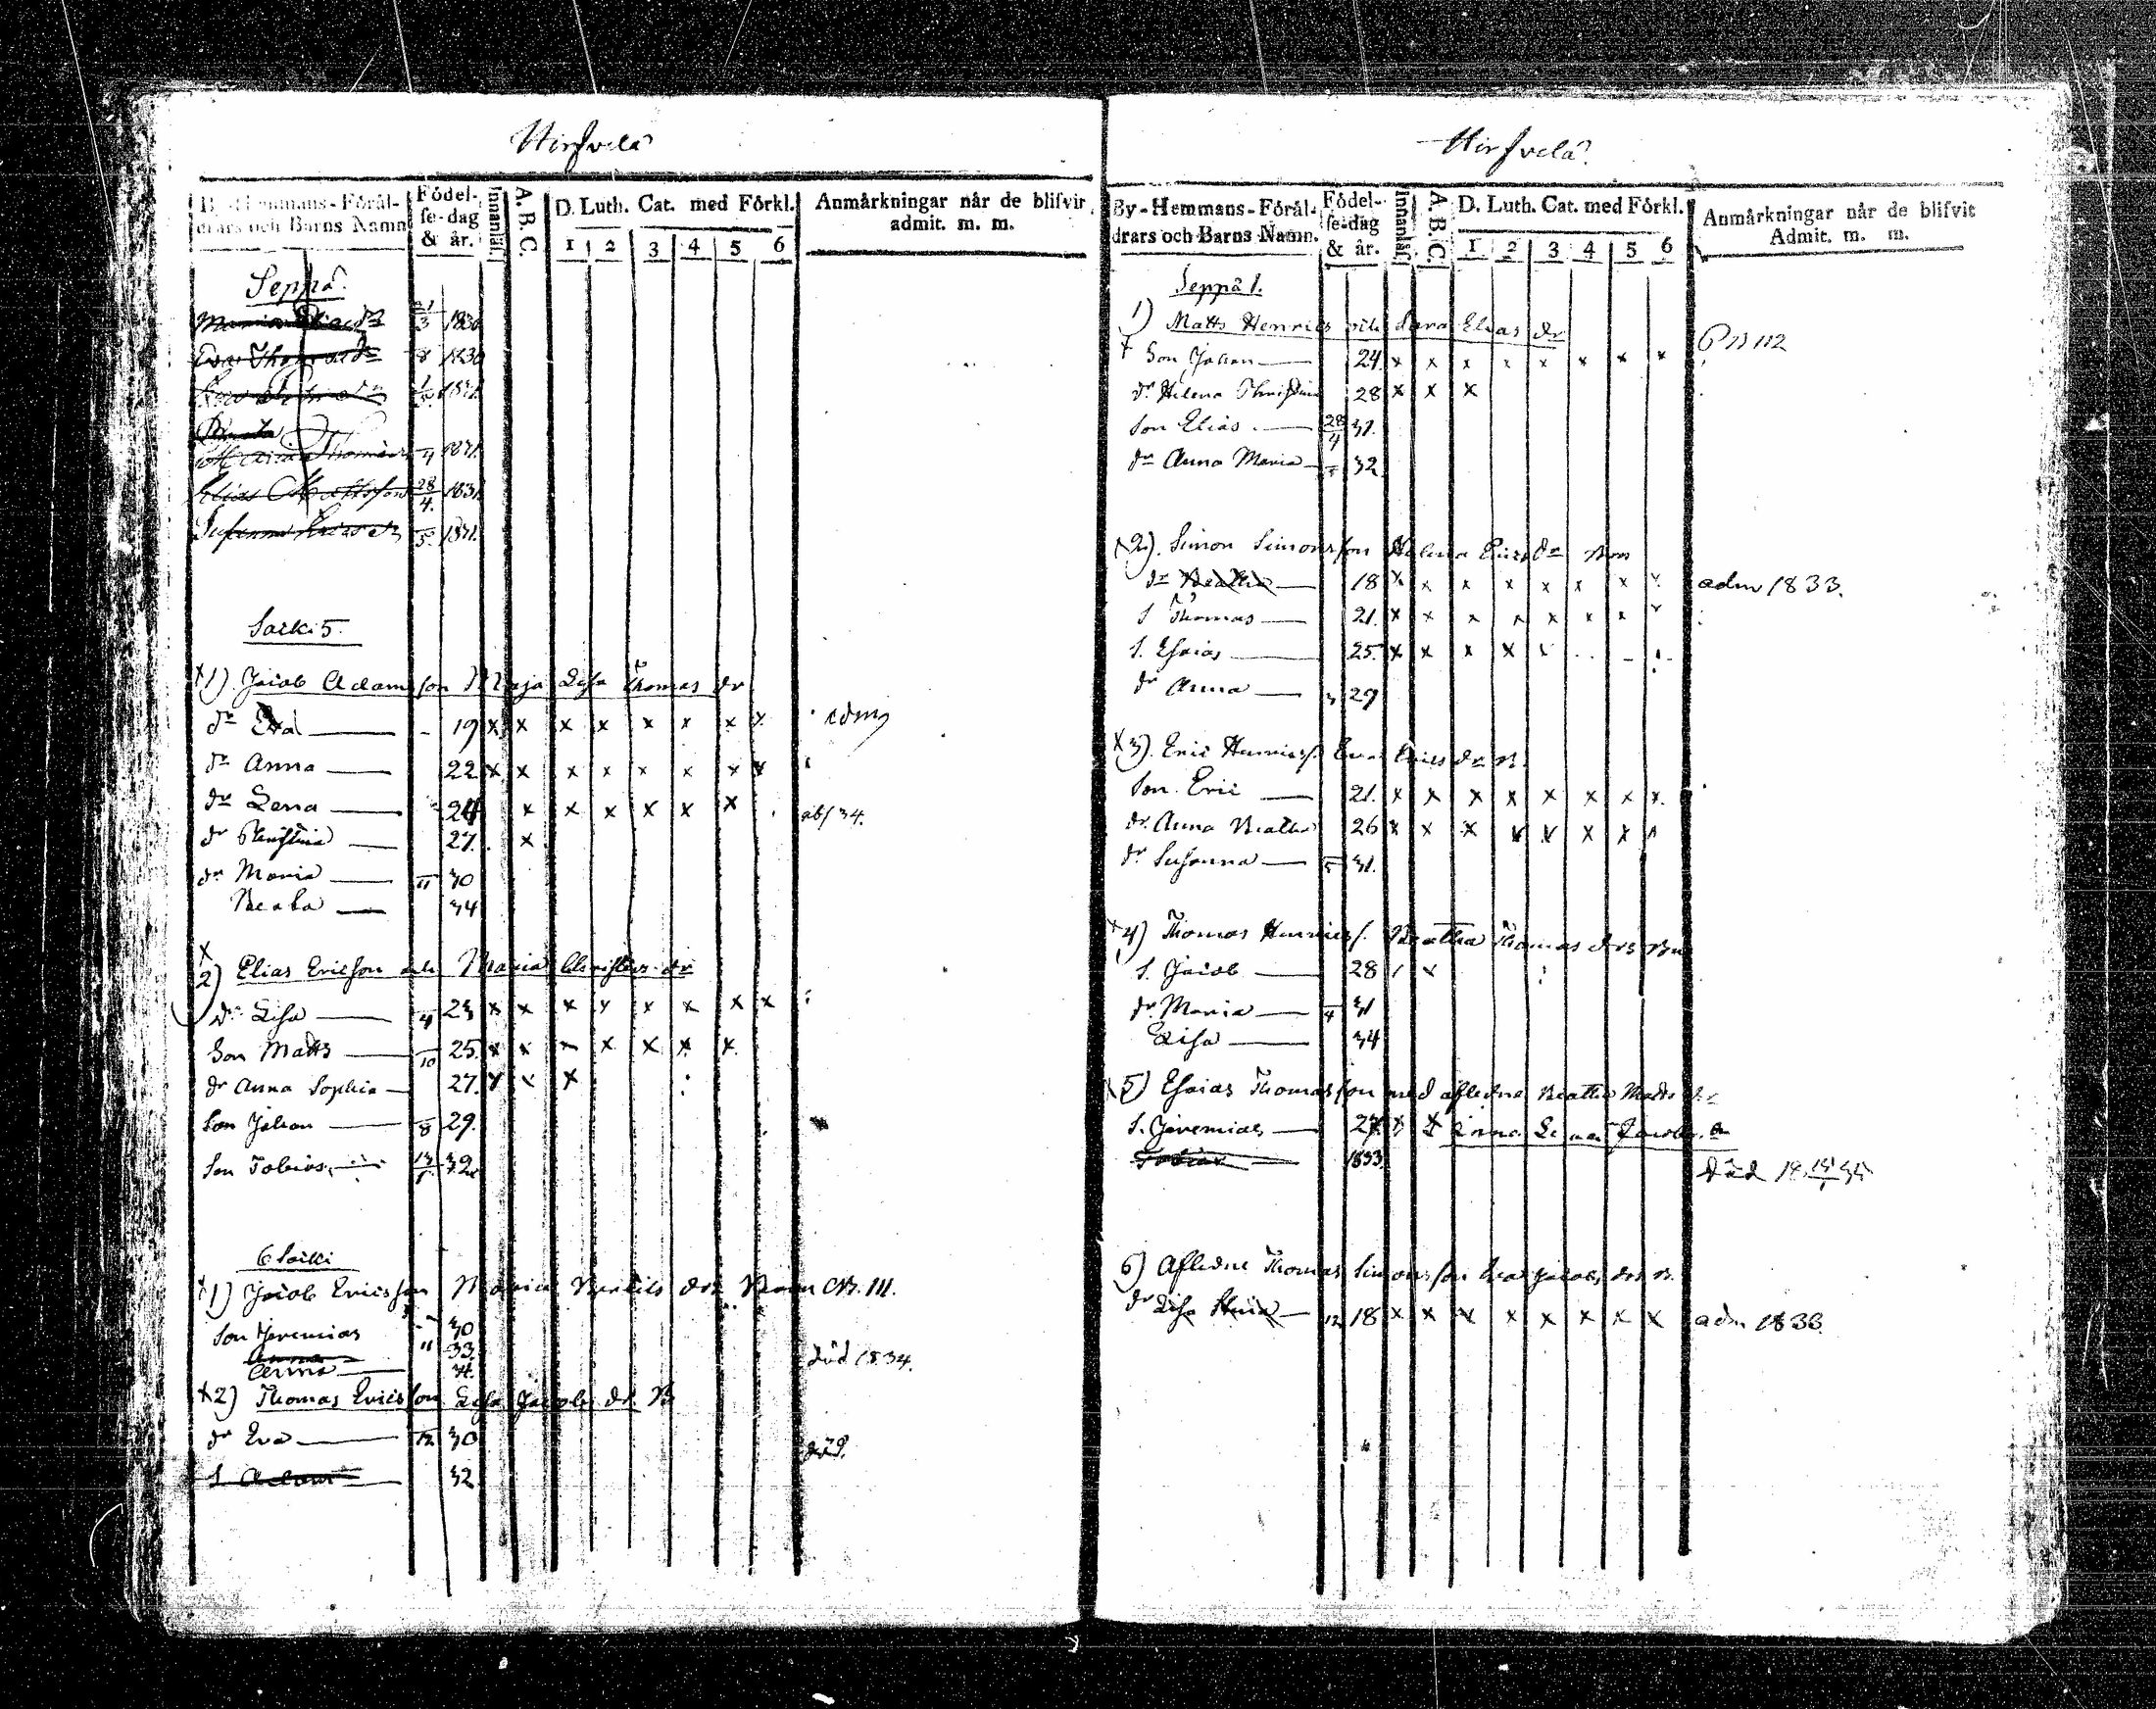 Hirfvelä
By-Hemmans-Förål-
drars och Barns Namn
Födel-
se-dag
& år.
Innanläs.
A. B. C.
D. Luth. Cat. med Förkl.
1 2 3 4 5 6
Anmårkningar når de blifvit
admit. m. m.
Seppä.
3 1830
Eva Thomasdr 8 1830
1831
Maria Thomas 4 1831
Elias Mattsson 28/4 1831
Susanna Ericsdr 5 1831.
Sarki 5.
x1) Jacob Adamsson Maja Lisa Thomas dr
dr Eva 19 x x x x x x x x adm
dr Anna 22 x x x x x x x x
dr Lena 24 x x x x x x abs 34.
dr Christina 27. x
dr Maria 11 30
Beata 34
x
2) Elias Ericsson och Maria Christers dr
dr Lisa 4 23 x x x x x x x x
Son Matts 10 25. x x x x x x x
dr Anna Sophia 27. x x x
Son Johan 8 29.
Son Tobias 32
6 Sarki
x1) Jacob Ericsson Maria Bertils drs Barn CB. 111.
Son Jeremias 30
Anna 11 33 död 1834.
x2) Thomas Ericsson Lisa Jacobs dr. B
dr Eva 12 30
S Adam 32 död.
Hirfvelä.
By-Hemmans-Förål-
drars och Barns Namn.
Födel-
se-dag
& år.
Innanläs.
A. B. C.
D. Luth. Cat. med Förkl.
1 2 3 4 5 6
Anmårkningar når de blifvit
Admit. m. m.
Seppä 1.
1) Matts Henrics och Sara Elias dr
x Son Johan 24. x x x x x x x x
dr Helena Christina 28 x x x
Son Elias 28/4 31.
dr Anna Maria 32
x2). Simon Simonsson Helena Erics dr Barn
dr Beatha 18 x x x x x x x x adm 1833.
S Thomas 21. x x x x x x x x
S. Esaias 25. x x x x
dr Anna 29
x3). Eric Henrics. Eva Erics dr B.
Son Eric 21. x x x x x x x x.
dr. Anna Beatha 26 x x x x x x x x
dr Susanna 5 31.
x4) Thomas Henrics. Beatha Thomas drs Bn
S. Jacob 28
dr Maria 4 31
Lisa 34
x5) Esaias Thomasson med aflidna Beatha Matts dr
S. Jeremias 27. x x Anna Lena Jacobs
Tobias 1833 död
6) Aflidne Thomas Simonsson Eva Jacobs drs B.
dr Lisa 12 18 x x x x x x x x adm 1833.